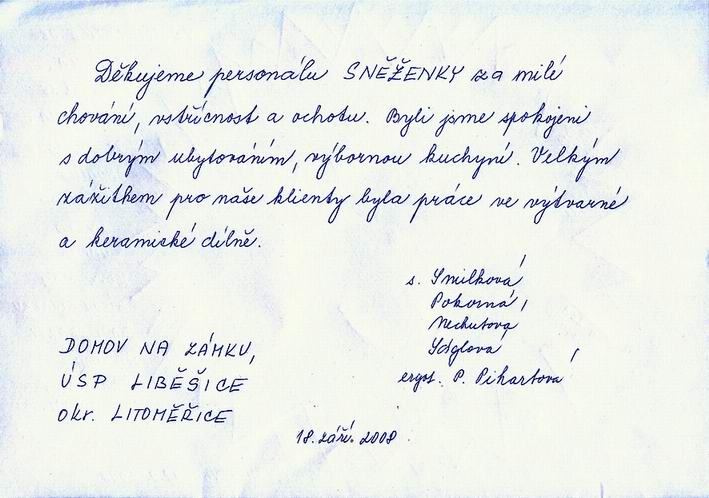 Děkujeme personálu SNĚŽENKY za milé
chování, vstřícnost a ochotu. Byli jsme spokojeni
s dobrým ubytováním, výbornou kuchyní. Velkým
zážitkem pro naše klienty byla práce ve výtvarné
a keramické dílně.
s. Smilková
Pokorná,
Nechutova
Ságlová
ergot. P. Pihartová
DOMOV NA ZÁMKU,
ÚSP LIBĚŠICE
okr. LITOMĚŘICE
18. září. 2008